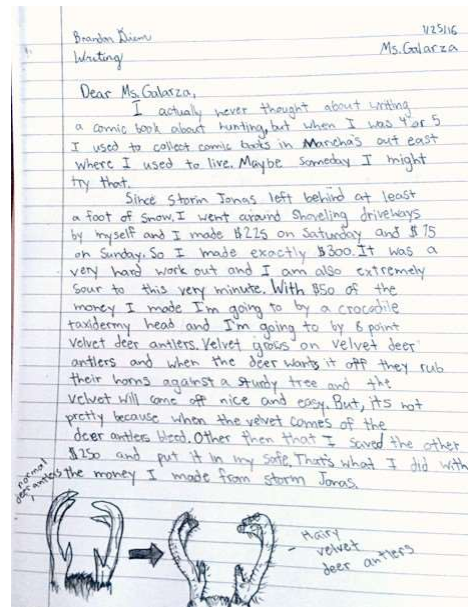 Brandon
1/25/16
Writing
Ms. Galarza
Dear Ms. Galarza,
I actually never thought about writing
a comic book about hunting, but when I was 4 or 5
I used to collect comic books in out east
where I used to live. Maybe someday I might
try that.
Since storm Jonas left behind at least
a foot of snow, I went around shoveling driveways
by myself and I made $225 on Saturday and $75
on Sunday. So I made exactly $300. It was a
very hard work out and I am also extremely
sour to this very minute. With $50 of the
money I made I'm going to by a crocodile
taxidermy head and I'm going to by 6 point
velvet deer antlers. Velvet grows on velvet deer
antlers and when the deer wants it off they rub
their horns against a sturdy tree and the
velvet will come off nice and easy. But, its not
pretty because when the velvet comes of the
deer antlers bleed. Other then that I saved the other
$250 and put it in my safe. That's what I did with
the money I made from storm Jonas.
normal
deer antlers
Hairy
velvet
deer antlers